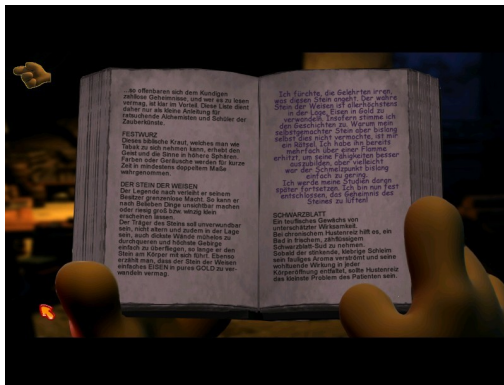 ...so offenbaren sich dem Kundigen
zahllose Geheimnisse, und wer es zu lesen
vermag, ist klar im Vorteil. Diese Liste dient
daher nur als kleine Anleitung für
ratsuchende Alchemisten und Schüler der
Zauberkünste.
FESTWURZ
Dieses biblische Kraut, welches man wie
Tabak zu sich nehmen kann, erhebt den
Geist und die Sinne in höhere Sphären.
Farben oder Geräusche werden für kurze
Zeit in mindestens doppeltem Maße
wahrgenommen.
DER STEIN DER WEISEN
Der Legende nach verleiht er seinem
Besitzer grenzenlose Macht. So kann er
nach Belieben Dinge unsichtbar machen
oder riesig groß bzw. winzig klein
erscheinen lassen.
Der Träger des Steins soll unverwundbar
sein, nicht altern und zudem in der Lage
sein, auch dickste Wände mühelos zu
durchqueren und höchste Gebirge
einfach zu überfliegen, so lange er den
Stein am Körper mit sich führt. Ebenso
erzählt man, dass der Stein der Weisen
einfaches EISEN in pures GOLD zu ver-
wandeln vermag.
Ich fürchte, die Gelehrten irren,
was diesen Stein angeht. Der wahre
Stein der Weisen ist allerhöchstens
in der Lage, Eisen in Gold zu
verwandeln. Insofern stimme ich
den Geschichten zu. Warum mein
selbstgemachter Stein aber bislang
selbst dies nicht vermochte, ist mir
ein Rätsel. Ich habe ihn bereits
mehrfach über einer Flamme
erhitzt, um seine Fähigkeiten besser
auszubilden, aber vielleicht
war der Schmelzpunkt bislang
einfach zu gering.
Ich werde meine Studien daran
später fortsetzen. Ich bin nun fest
entschlossen, das Geheimnis des
Steines zu lüften!
SCHWARZBLATT
Ein teuflisches Gewächs von
unterschätzter Wirksamkeit.
Bei chronischem Hustenreiz hilft es, ein
Bad in frischem, zähflüssigem
Schwarzblatt-Sud zu nehmen.
Sobald der stinkende, klebrige Schleim
sein fauliges Aroma verströmt und seine
wohltuende Wirkung in jeder
Körperöffnung entfaltet, sollte Hustenreiz
das kleinste Problem des Patienten sein.